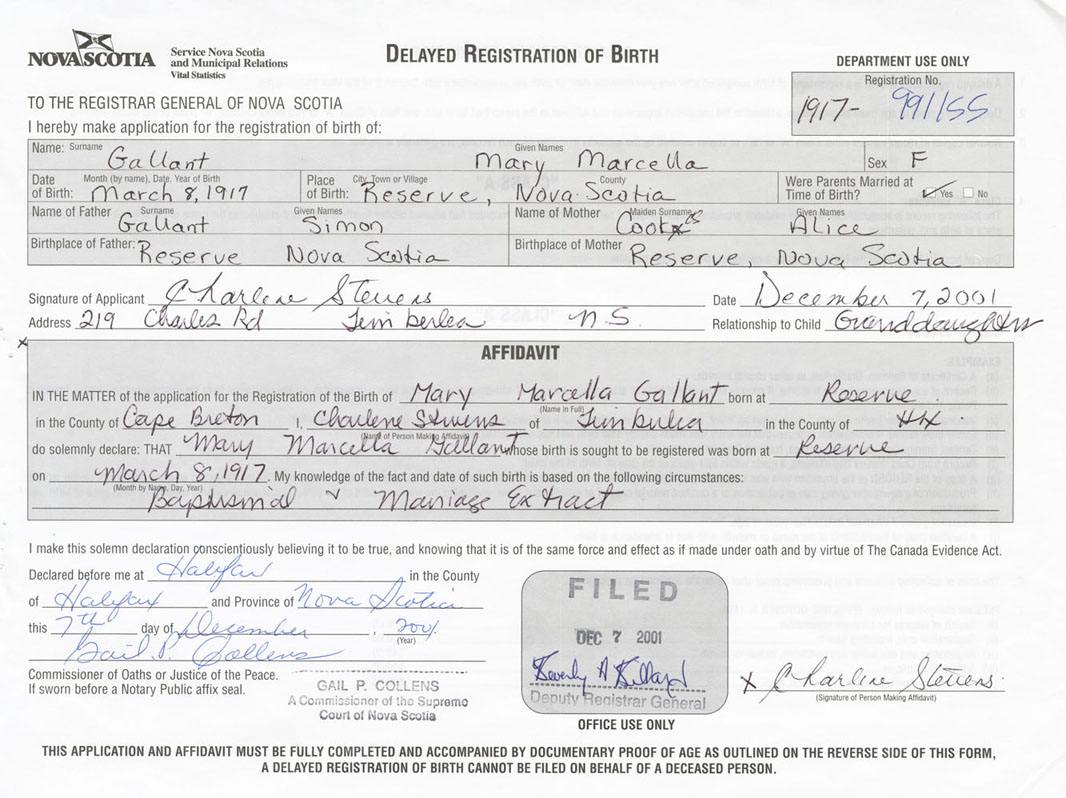 NOVA SCOTIA
Service Nova Scotia
and Municipal Relations
Vital Statistics
DELAYED REGISTRATION OF BIRTH
DEPARTMENT USE ONLY
Registration No.
1917- 991155
TO THE REGISTRAR GENERAL OF NOVA SCOTIA
I hereby make application for the registration of birth of:
Name: Surname Gallant Given Names Mary Marcella Sex F
Date of Birth: Month (by name), Date, Year of Birth March 8, 1917 Place of Birth: City, Town or Village Reserve, County Nova Scotia Were Parents Married at Time of Birth? Yes No
Name of Father Surname Gallant Given Names Simon Name of Mother Maiden Surname Given Names Alice
Birthplace of Father: Reserve Nova Scotia Birthplace of Mother Reserve, Nova Scotia
Signature of Applicant Charlene Stevens Date December 7, 2001
Address 219 Charles Rd Timberlea N.S. Relationship to Child Granddaughter
AFFIDAVIT
IN THE MATTER of the application for the Registration of the Birth of Mary Marcella Gallant born at Reserve
(Name in Full)
in the County of Cape Breton I, Charlene Stevens of Timberlea in the County of Hfx
(Name of Person Making Affidavit)
do solemnly declare: THAT Mary Marcella Gallant whose birth is sought to be registered was born at Reserve
on March 8, 1917. My knowledge of the fact and date of such birth is based on the following circumstances:
(Month by Name, Day, Year)
Baptismal & Marriage Extract
I make this solemn declaration conscientiously believing it to be true, and knowing that it is of the same force and effect as if made under oath and by virtue of The Canada Evidence Act.
Declared before me at Halifax in the County
of Halifax and Province of Nova Scotia
this 7th day of December, 2001
(Year)
Gail P. Collens
Commissioner of Oaths or Justice of the Peace.
If sworn before a Notary Public affix seal.
GAIL P. COLLENS
A Commissioner of the Supreme
Court of Nova Scotia
FILED
DEC 7 2001
Beverly A Killard
Deputy Registrar General
OFFICE USE ONLY
X Charlene Stevens
(Signature of Person Making Affidavit)
THIS APPLICATION AND AFFIDAVIT MUST BE FULLY COMPLETED AND ACCOMPANIED BY DOCUMENTARY PROOF OF AGE AS OUTLINED ON THE REVERSE SIDE OF THIS FORM,
A DELAYED REGISTRATION OF BIRTH CANNOT BE FILED ON BEHALF OF A DECEASED PERSON.